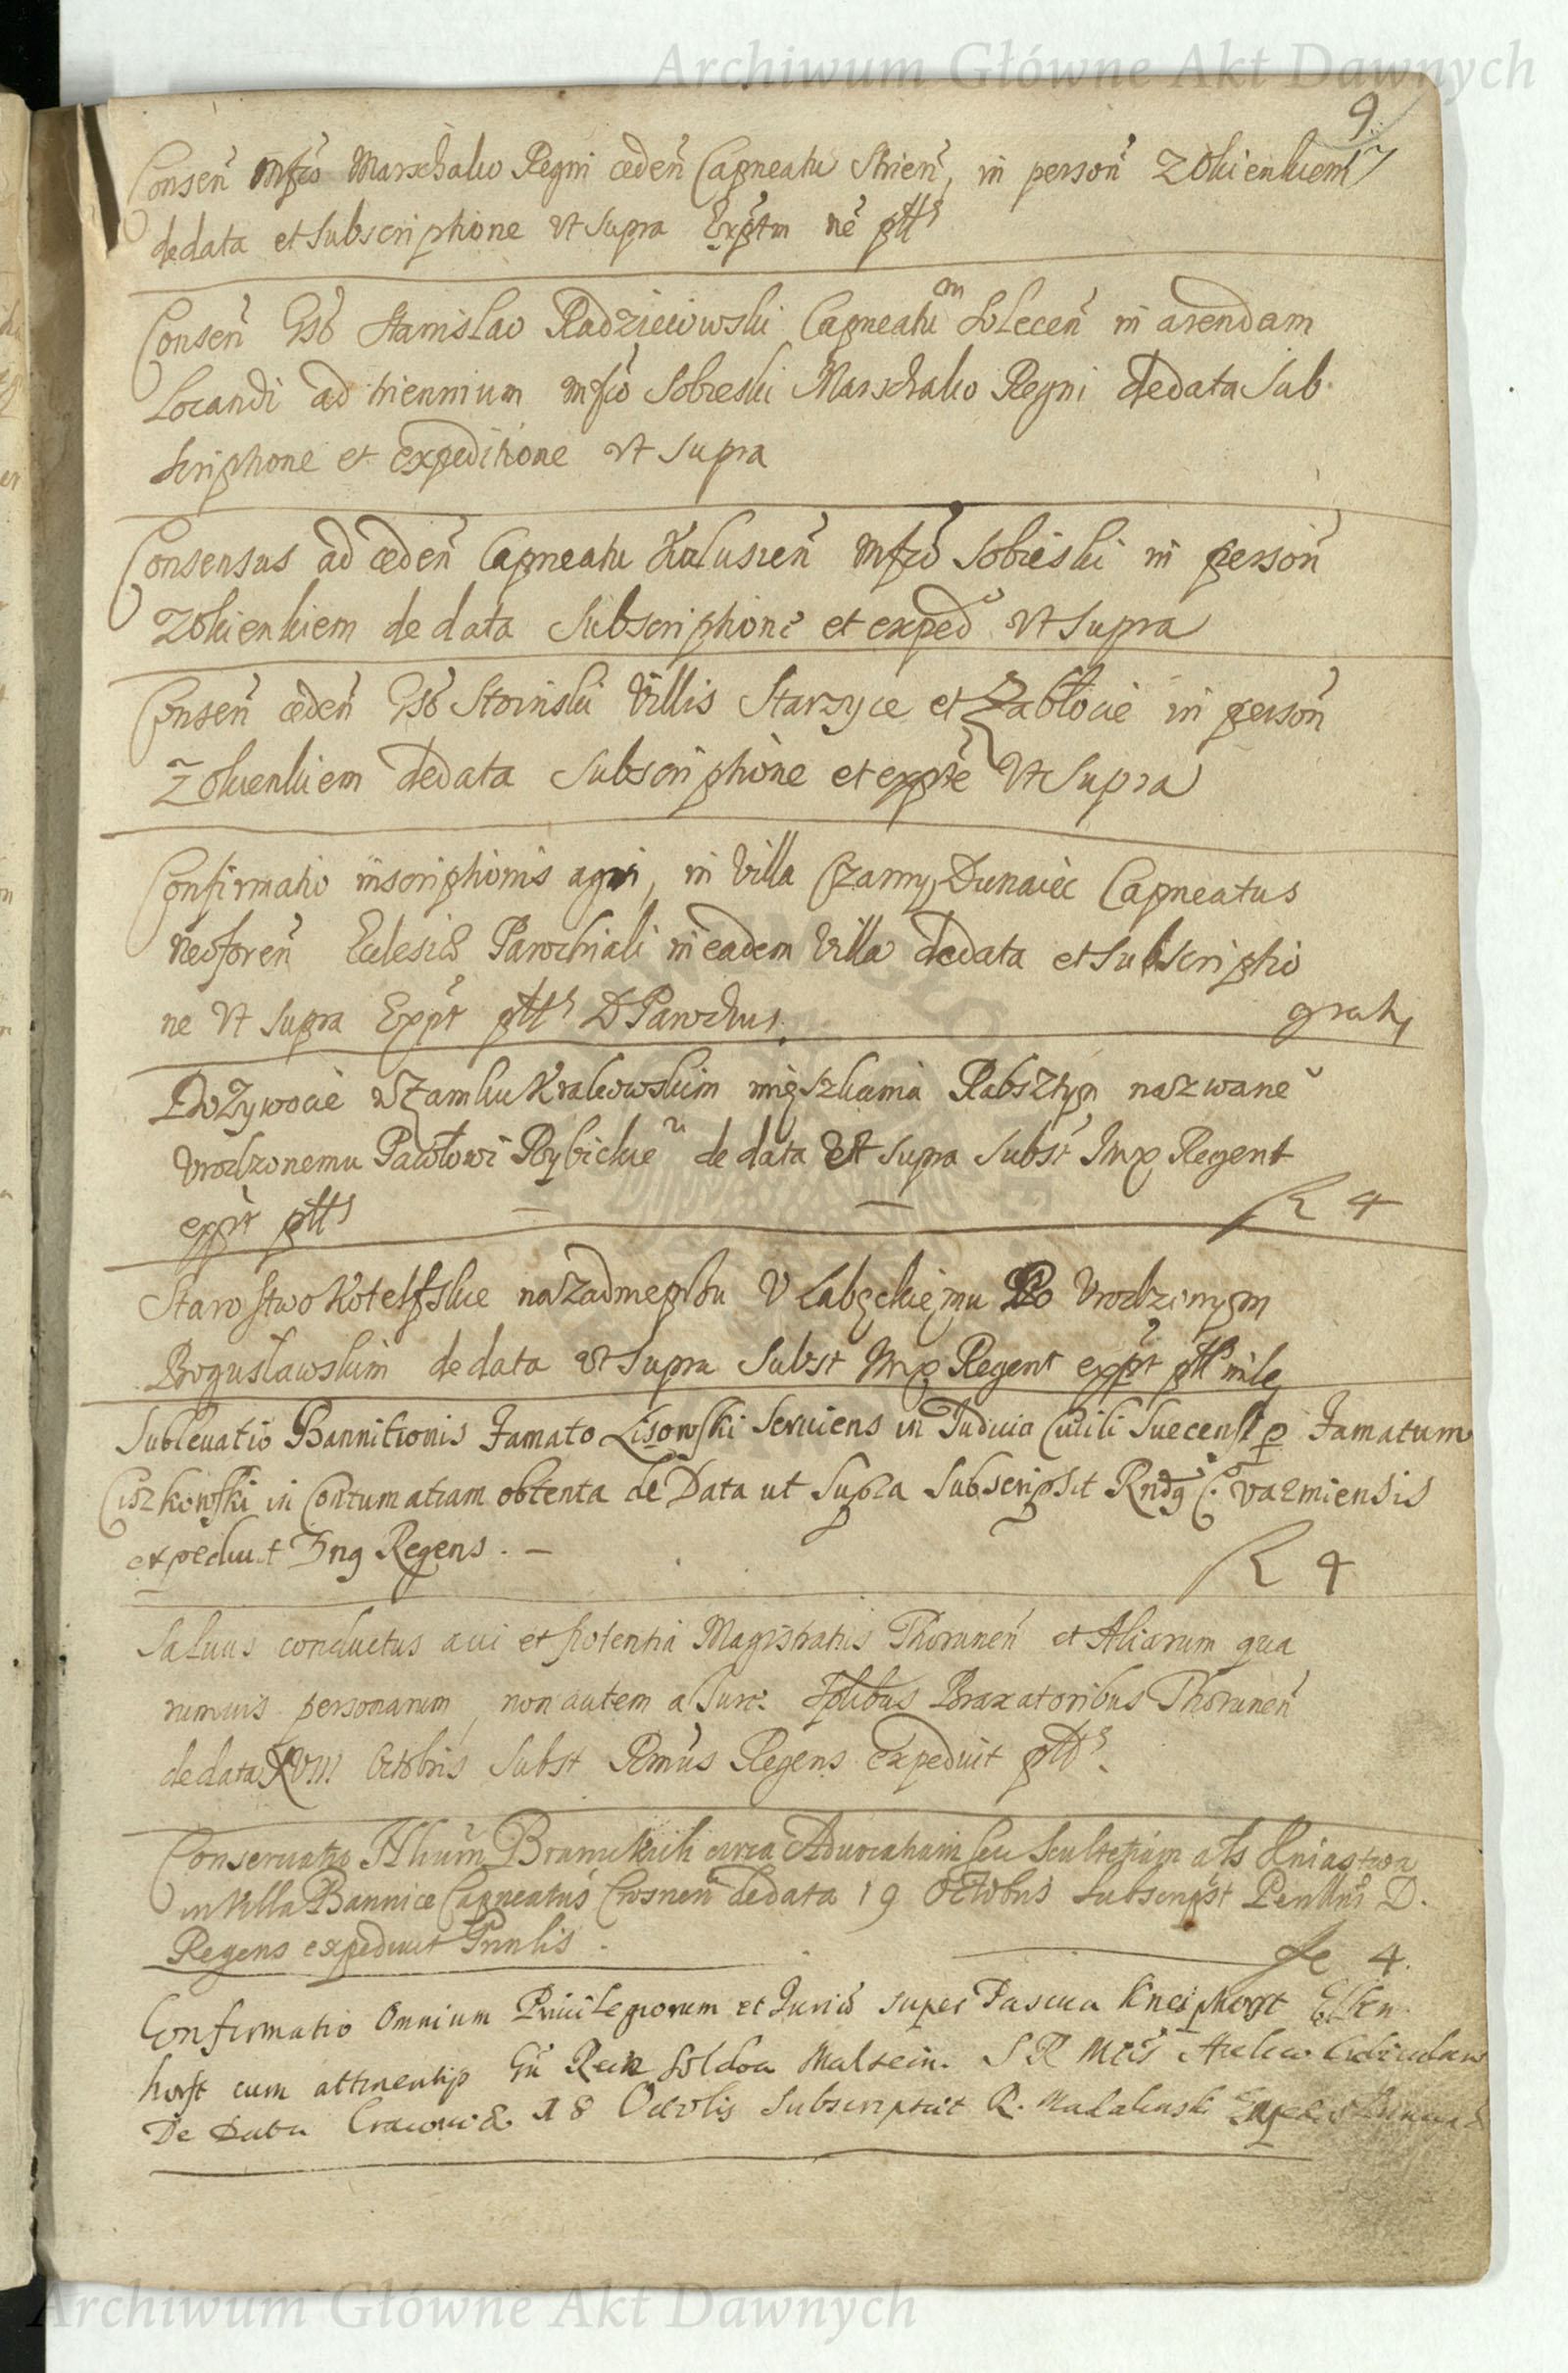 Archiwum Główne Akt Dawnych
9.
Conseñ mfco Marschalco Regni cedeñ Capneatu Strieñ, in persoñ Zolkienkiem
de data et subscriptione vt supra Exptm ne ptts
Conseñ Gso Stanislao Radzieiowski Capneatum Soleceñ in arendam
Locandi ad triennium mfco Sobieski Marschalco Regni de data Sub-
scriptione et expeditione vt supra
Consensus ad cedeñ Capneatu Kalusieñ mfco Sobieski in persoñ
Zolkienkiem de data Subscriptione et exped vt supra
Conseñ cedeñ Gso Stoinski Villis Starzyce et Zablocie in persoñ
Zolkienkiem de data subscriptione et expte vt supra
Confirmatio inscriptionis agri, in Villa Czarny Dunaiec Capneatus
Neoforeñ Eclesiæ Parochiali in eadem Villa de data et subscriptio
ne vt supra Expt ptts D Parochus. gratis
Dożywocie w Zamku Krakowskim mięszkania Rabsztyn nazwane
Vrodzonemu Pawłowi Rybickie de data vt supra subst Imp Regent
expt ptts R 4
Starostwo Kotelskie na Zadnieprzu V Labęckiemu Po Vrodzonym
Bogusławskim de data vt supra Subst Imp Regent expt ptt mile
Subleuatio Bannitionis Famato Lisowski seruiens in Iudicio Ciuili Suecensi p Famatum
Ciszkowski in Contumatiam obtenta de Data ut Supra Subscripsit Rndg C. varmiensis
expediuit Ing Regens. — R 4
Saluus conductus a ui et potentia Magistratus Thoruneñ et Aliarum qua
rumuis personarum, non autem a Iure. Fplibus Braxatoribus Thoruneñ
de data XVIII Octobris Subst Rmus Regens expediuit ptts.
Conseruatio circa Aduocatiam seu Scultetiam als Kniastwa
in Villa Bannice Capneatus Crosneñ de data 19 Octobris Subscripst D.
Regens expediuit 4.
Confirmatio Omnium Priuilegiorum et Iuris super Pascua Kneiphorst Ellen
horst cum attinentijs
De Data Cracouiæ 18 Subscripsit R. Madalinski
Archiwum Główne Akt Dawnych